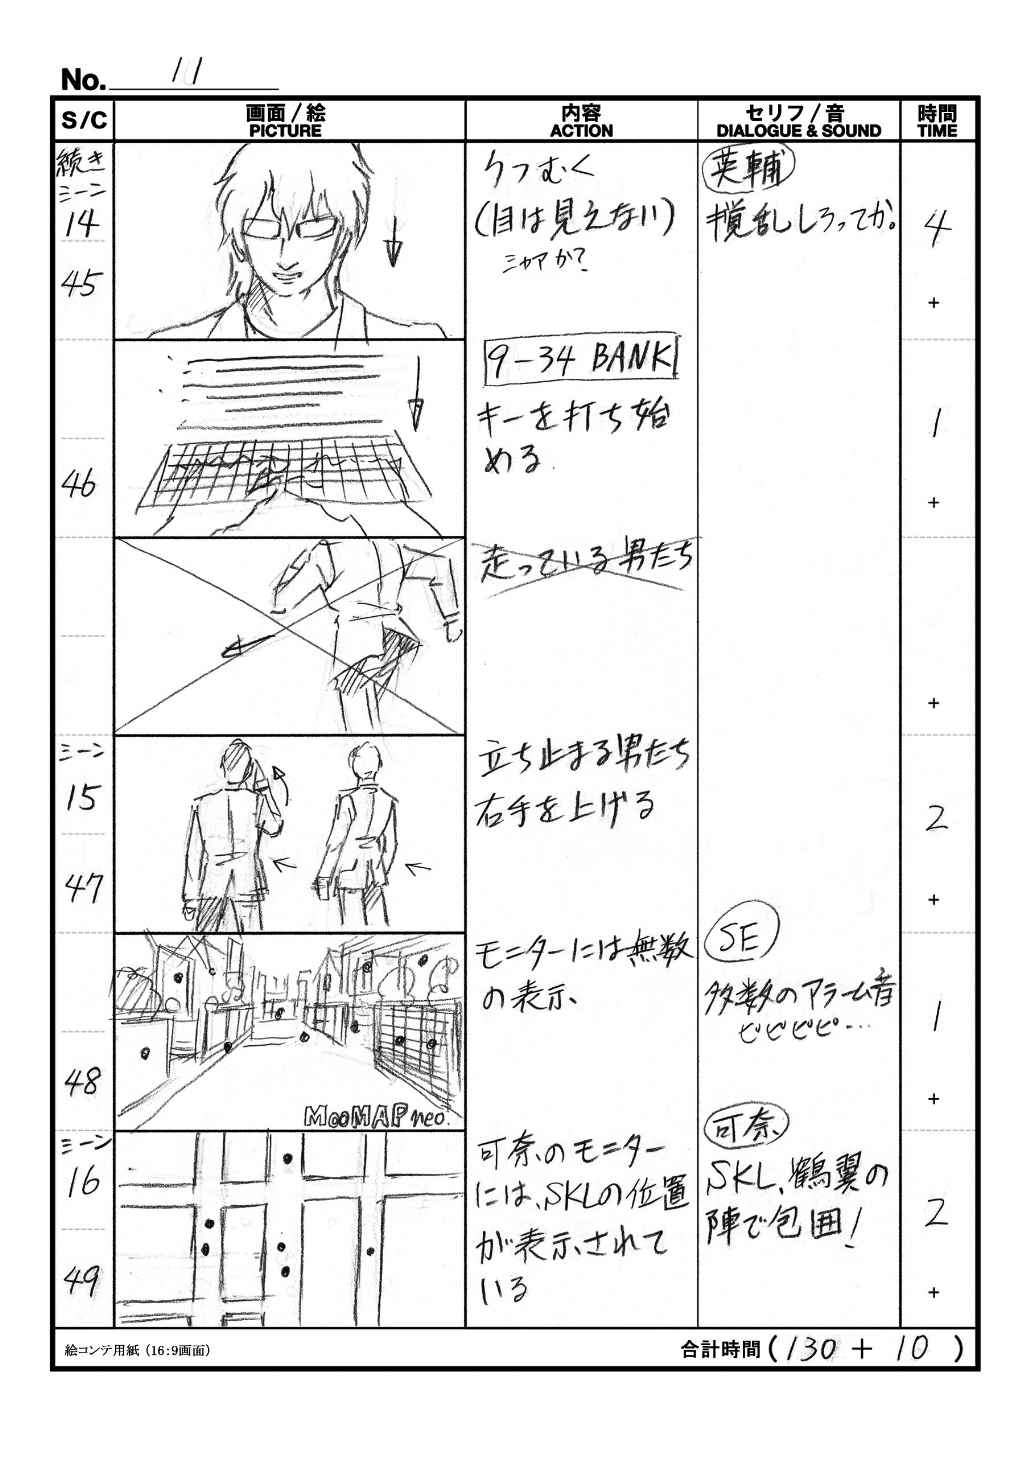 No. 11
S/C
画面/絵
PICTURE
内容
ACTION
セリフ/音
DIALOGUE & SOUND
時間
TIME
続き
シーン
14
45
うつむく
(目は見えない)
シャアか?
英輔
撹乱しろってか。
4
+
46
9-34 BANK
キーを打ち始
める.
1
+
走っている男たち
+
シーン
15
47
立ち止まる男たち
右手を上げる
2
+
48
MooMAP neo.
モニターには無数
の表示、
SE
多数のアラーム音
ピピピピ…
1
+
シーン
16
49
可奈のモニター
には、SKLの位置
が表示されて
いる
可奈
SKL、鶴翼の
陣で包囲!
2
+
絵コンテ用紙(16:9画面)
合計時間(130 + 10)